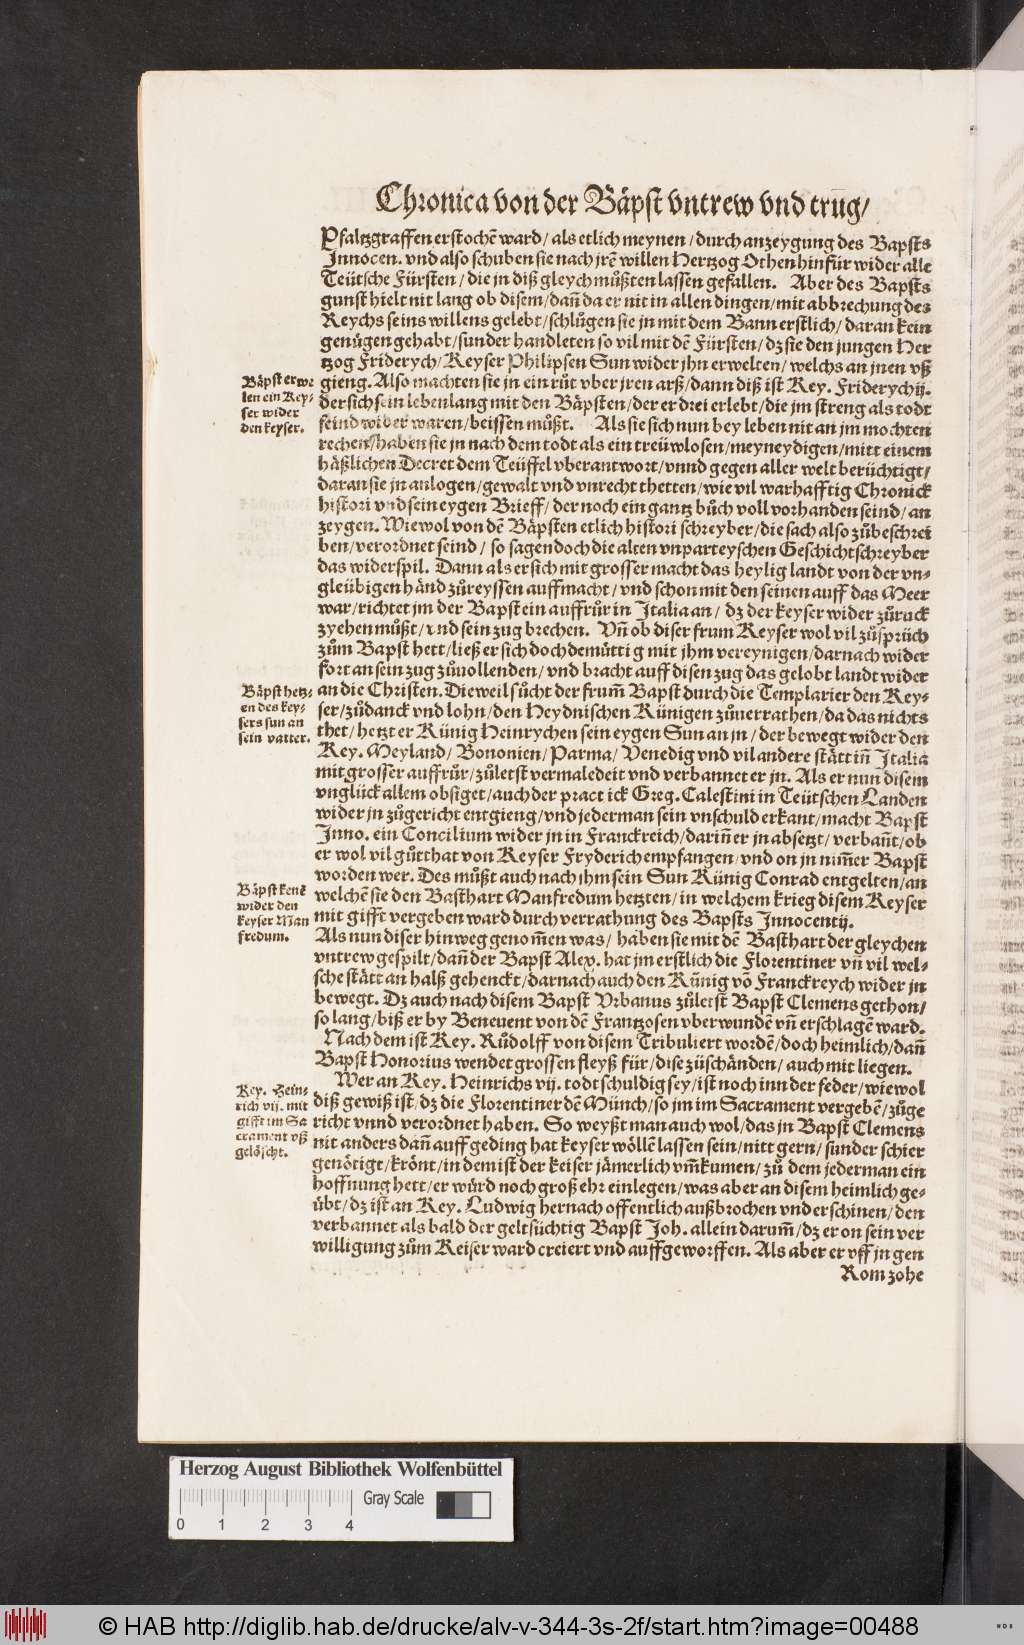 Chronica von der Bäpst vntrew vnd trug̃/
Pfaltzgraffen erstochẽ ward/ als etlich meynen/ durch anzeygung des Bapsts
Innocen. vnd also schuben sie nach jrẽ willen Hertzog Othen hinfür wider alle
Teütsche Fürsten/ die in diß gleych můßten lassen gefallen. Aber des Bapsts
gunst hielt nit lang ob disem/ dañ da er nit in allen dingen/ mit abbrechung des
Reychs seins willens gelebt/ schlůgen sie jn mit dem Bann erstlich/ daran kein
genügen gehabt/ sunder handleten so vil mit dẽ Fürsten/ dz sie den jungen Her
tzog Friderych/ Keyser Philipsen Sun wider jhn erwelten/ welchs an jnen vß
gieng. Also machten sie jn ein růt vber jren arß/ dann diß ist Key. Friderych ij.
der sich sein lebenlang mit den Bäpsten/ der er drei erlebt/ die jm streng als todt
feind wider waren/ beissen můßt. Als sie sich nun bey leben nit an jm mochten
rechen/ haben sie jn nach dem todt als ein treüwlosen/ meyneydigen/ mitt einem
häßlichen Decret dem Teüffel vberantwort/ vnnd gegen aller welt berüchtigt/
daran sie jn anlogen/ gewalt vnd vnrecht thetten/ wie vil warhafftig Chronick
histori vnd sein eygen Brieff/ der noch ein gantz bůch voll vorhanden seind/ an
zeygen. Wiewol von dẽ Bäpsten etlich histori schreyber/ die sach also zůbeschrei
ben/ verordnet seind/ so sagen doch die alten vnparteyschen Geschichtschreyber
das widerspil. Dann als er sich mit grosser macht das heylig landt von der vn-
gleübigen händ zůreyssen auffmacht/ vnd schon mit den seinen auff das Meer
war/ richtet jm der Bapst ein auffrůr in Italia an/ dz der keyser wider zůruck
zyehen můßt/ vnd sein zug brechen. Vñ ob diser frum Keyser wol vil zůsprüch
zům Bapst hett/ ließ er sich doch demüttig mit jhm vereynigen/ darnach wider
fort an sein zug zůuollenden/ vnd bracht auff disen zug das gelobt landt wider
an die Christen. Dieweil sůcht der frum̃ Bapst durch die Templarier den Key-
ser/ zůdanck vnd lohn/ den Heydnischen Künigen zůuerrathen/ da das nichts
thet/ hetzt er Künig Heinrychen sein eygen Sun an jn/ der bewegt wider den
Key. Meyland/ Bononien/ Parma/ Venedig vnd vil andere stätt iñ Italia
mit grosser auffrůr/ zůletst vermaledeit vnd verbannet er jn. Als er nun disem
vnglück allem obsiget/ auch der practick Greg. Calestini in Teütschen Landen
wider jn zůgericht entgieng/ vnd jederman sein vnschuld erkant/ macht Bapst
Inno. ein Concilium wider jn in Franckreich/ dariñ er jn absetzt/ verbañt/ ob
er wol vil gůtthat von Keyser Fryderich empfangen/ vnd on jn nim̃er Bapst
worden wer. Des můßt auch nach jhm sein Sun Künig Conrad entgelten/ an
welchẽ sie den Basthart Manfredum hetzten/ in welchem krieg disem Keyser
mit gifft vergeben ward durch verrathung des Bapsts Innocentij.
Als nun diser hinweg genom̃en was/ haben sie mit dẽ Basthart der gleychen
vntrew gespilt/ dañ der Bapst Alex. hat jm erstlich die Florentiner vñ vil wel-
sche stätt an halß gehenckt/ darnach auch den Künig võ Franckreych wider jn
bewegt. Dz auch nach disem Bapst Vrbanus zůletst Bapst Clemens gethon/
so lang/ biß er by Beneuent von dẽ Frantzosen vberwundẽ vñ erschlagẽ ward.
Nach dem ist Key. Růdolff von disem Tribuliert wordẽ/ doch heimlich/ dañ
Bapst Honorius wendet grossen fleyß für/ dise zůschänden/ auch mit liegen.
Wer an Key. Heinrichs vij. todt schuldig sey/ ist noch inn der feder/ wiewol
diß gewiß ist/ dz die Florentiner dẽ Münch/ so jm im Sacrament vergebẽ/ zůge
richt vnnd verordnet haben. So weyßt man auch wol/ das jn Bapst Clemens
nit anders dañ auff geding hat keyser wöllẽ lassen sein/ nitt gern/ sunder schier
genötigt/ krönt/ in dem ist der keiser jämerlich vm̃kumen/ zů dem jederman ein
hoffnung hett/ er würd noch groß ehr einlegen/ was aber an disem heimlich ge-
übt/ dz ist an Key. Ludwig hernach offentlich außbrochen vnd erschinen/ den
verbannet als bald der geltsüchtig Bapst Joh. allein darum̃/ dz er on sein ver
willigung zům Keiser ward creiert vnd auffgeworffen. Als aber er vff jn gen
Rom zohe
Bäpst erwe
len ein Key-
ser wider
den keyser.
Bäpst hetz-
en des key-
sers sun an
sein vatter.
Bäpst kenẽ
wider den
keyser Man
fredum.
Key. Hein-
rich vij. mit
gifft im Sa
crament vß
gelöscht.
Herzog August Bibliothek Wolfenbüttel
Gray Scale
0 1 2 3 4
© HAB http://diglib.hab.de/drucke/alv-v-344-3s-2f/start.htm?image=00488